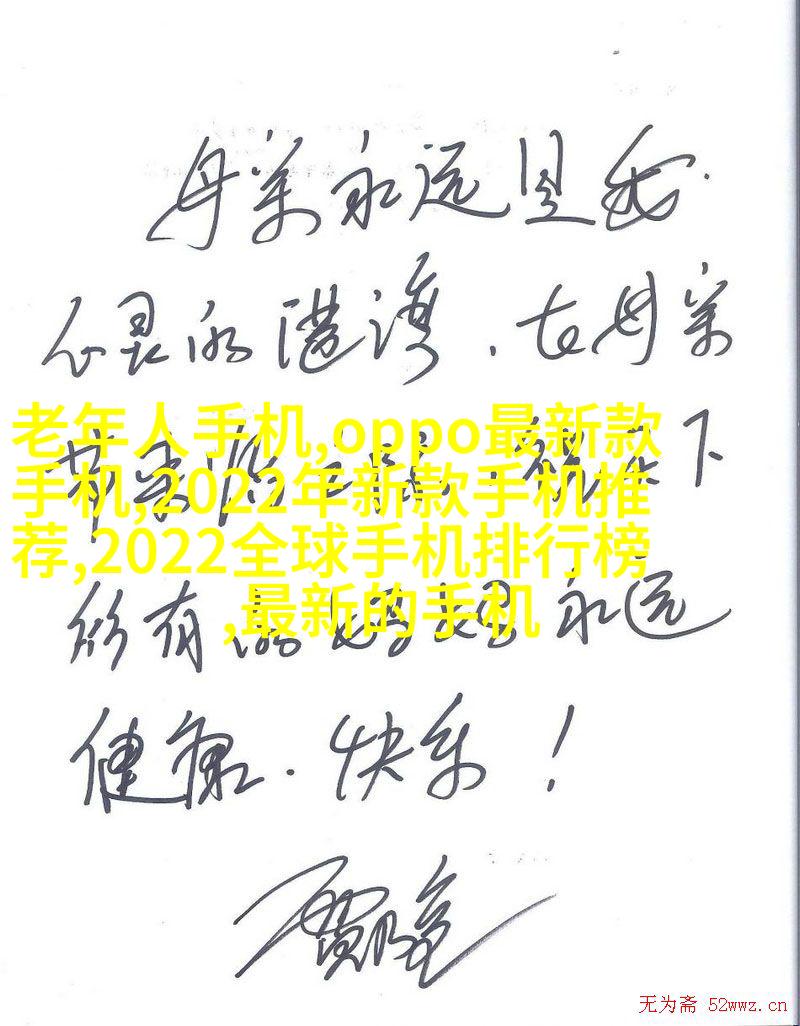 母亲永远是我
心灵的港湾，在母亲
老年人手机,oppo最新款
节来临之际，祝天下
手机,2022年新款手机推
荐,2022全球手机排行榜
,最新的手机
所有的妈妈永远
健康、快乐！
无为斋 52wwz.cn